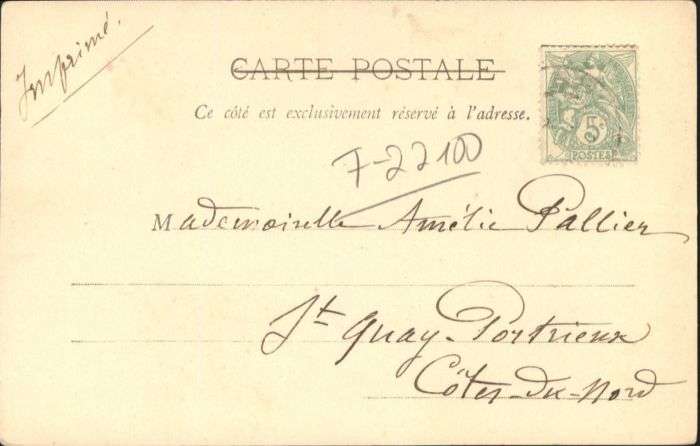 Imprimé.
CARTE POSTALE
Ce côté est exclusivement réservé à l'adresse.
5c
POSTES
F-22100
Mademoiselle Amélie Pallier
St Quay-Portrieux
Côtes-du-Nord